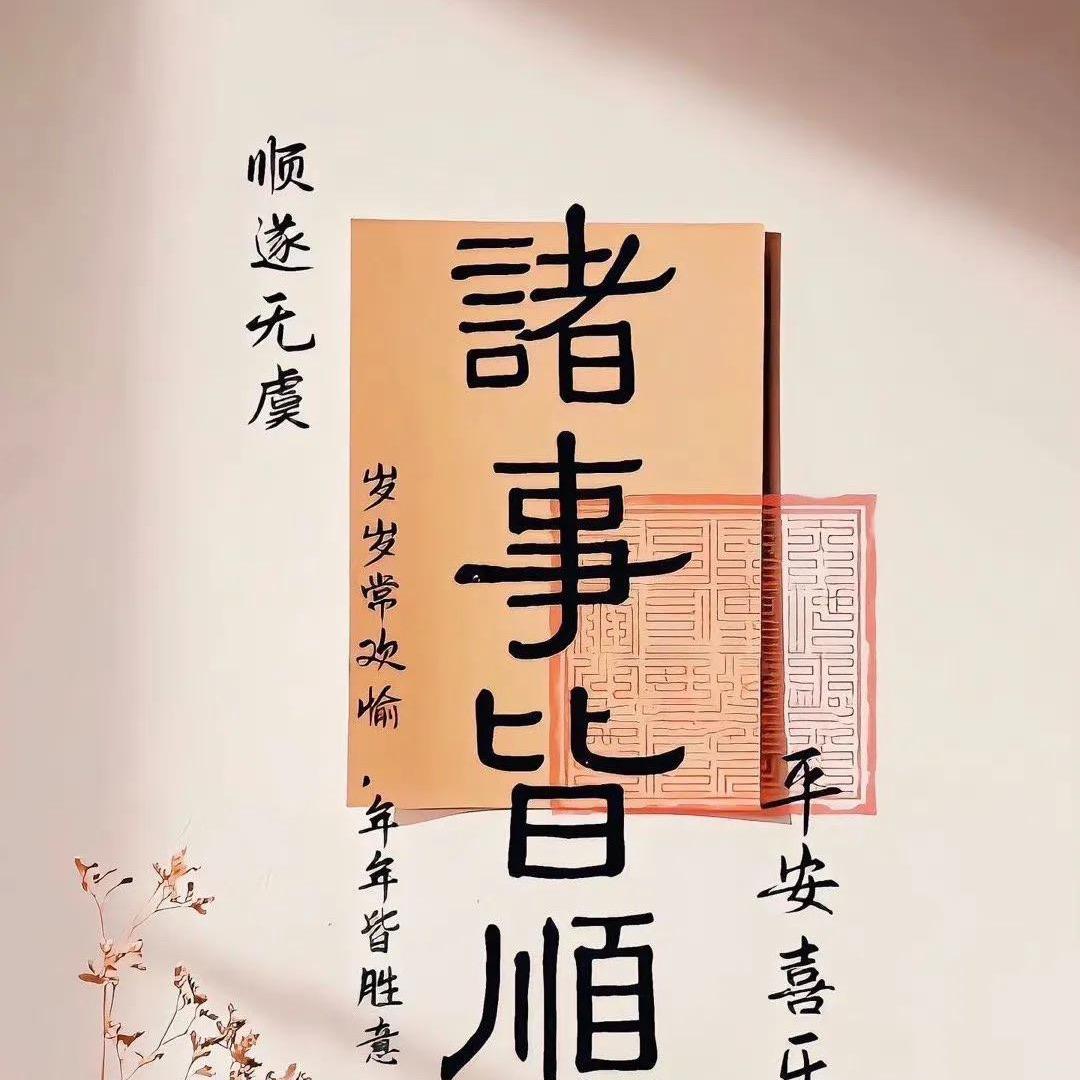 順
遂无虞
諸事皆順
岁岁常欢愉
，年年皆胜意
平安喜乐